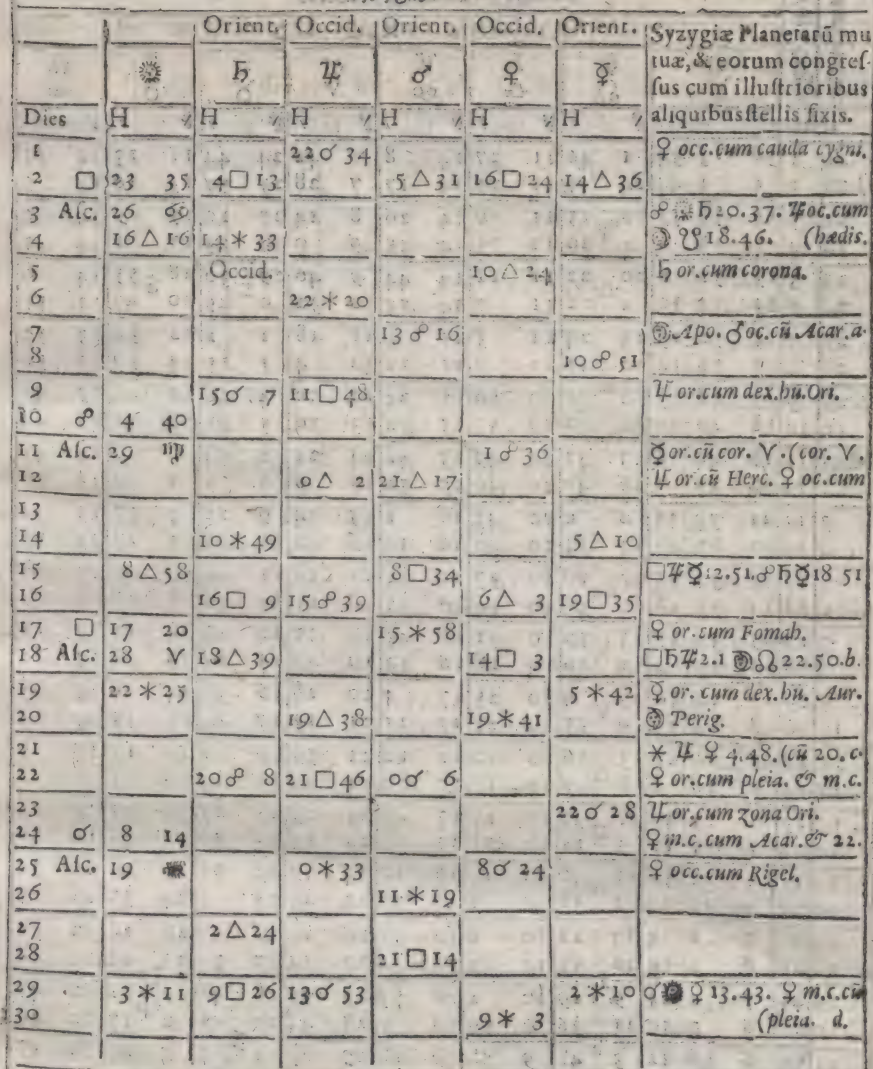 Orient. Occid. Orient. Occid. Orient. Syzygiæ Planetarũ mu
☉ ♄ ♃ ♂ ♀ ☿ tuæ, & eorum congreſ-
ſus cum illuſtrioribus
Dies H H H H H H aliquibus ſtellis fixis.
1 22 ☌ 34 ♀ occ. cum cauda cygni.
2 □ 23 35 4 □ 13 5 △ 31 16 □ 24 14 △ 36
3 Aſc. 26 ♋ ☍ ☉ ♄ 20.37. ♃ oc. cum
4 16 △ 16 14 ⚹ 33 ☽ ☋ 18.46. (hædis.
5 Occid. 10 △ 24 ♄ or. cum corona.
6 22 ⚹ 20
7 13 ☍ 16 ☽ Apo. ♂ oc. cũ Acar. a.
8 10 ☍ 51
9 15 ☌ 7 11 □ 48 ♃ or. cum dex. hu. Ori.
10 ☍ 4 40
11 Aſc. 29 ♍ 1 ☍ 36 ☿ or. cũ cor. ♈. (cor. ♈.
12 0 △ 2 21 △ 17 ♃ or. cũ Herc. ♀ oc. cum
13
14 10 ⚹ 49 5 △ 10
15 8 △ 58 8 □ 34 □ ♃ ☿ 12.51. ☍ ♄ ☿ 18 51
16 16 □ 9 15 ☍ 39 6 △ 3 19 □ 35
17 □ 17 20 15 ⚹ 58 ♀ or. cum Fomah.
18 Aſc. 28 ♈ 18 △ 39 14 □ 3 □ ♄ ♃ 2.1 ☽ ☊ 22.50. b.
19 22 ⚹ 25 5 ⚹ 42 ☿ or. cum dex. hu. Aur.
20 19 △ 38 19 ⚹ 41 ☽ Perig.
21 ⚹ ♃ ♀ 4.48. (cũ 20. c.
22 20 ☍ 8 21 □ 46 0 ☌ 6 ♀ or. cum pleia. & m.c.
23 22 ☌ 28 ♃ or. cum zona Ori.
24 ☌ 8 14 ♀ m.c. cum Acar. & 22.
25 Aſc. 19 0 ⚹ 33 8 ☌ 24 ♀ occ. cum Rigel.
26 11 ⚹ 19
27 2 △ 24
28 21 □ 14
29 3 ⚹ 11 9 □ 26 13 ☌ 53 2 ⚹ 10 ☌ ☉ ☿ 13.43. ☿ m.c. cũ
30 9 ⚹ 3 (pleia. d.